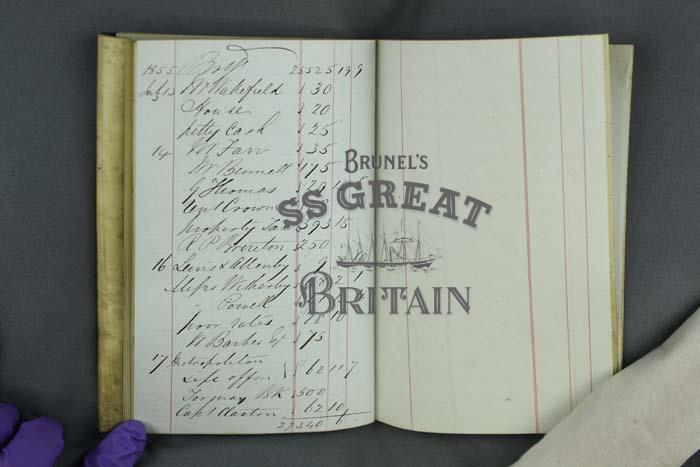 1855 25525 19 9
July 13 Mr Wakefield √ 30
House √ 20
Petty Cash √ 25
14 Mr Farr √ 35
Mr Bennett √ 175
G Thomas √ 20
Crown
Property Tax √ 393 15
R P Brereton √ 250
16 Lewis & Allenby √ 9
Messrs Wetherby 2 1
" Powell
Poor rates √ 18 10
W Barber √ 75
17 Metropolitan
Life office √ 62 11 7
Torquay BK √ 500
Capt Claxton 62 10
27340
BRUNEL'S
SS GREAT
BRITAIN